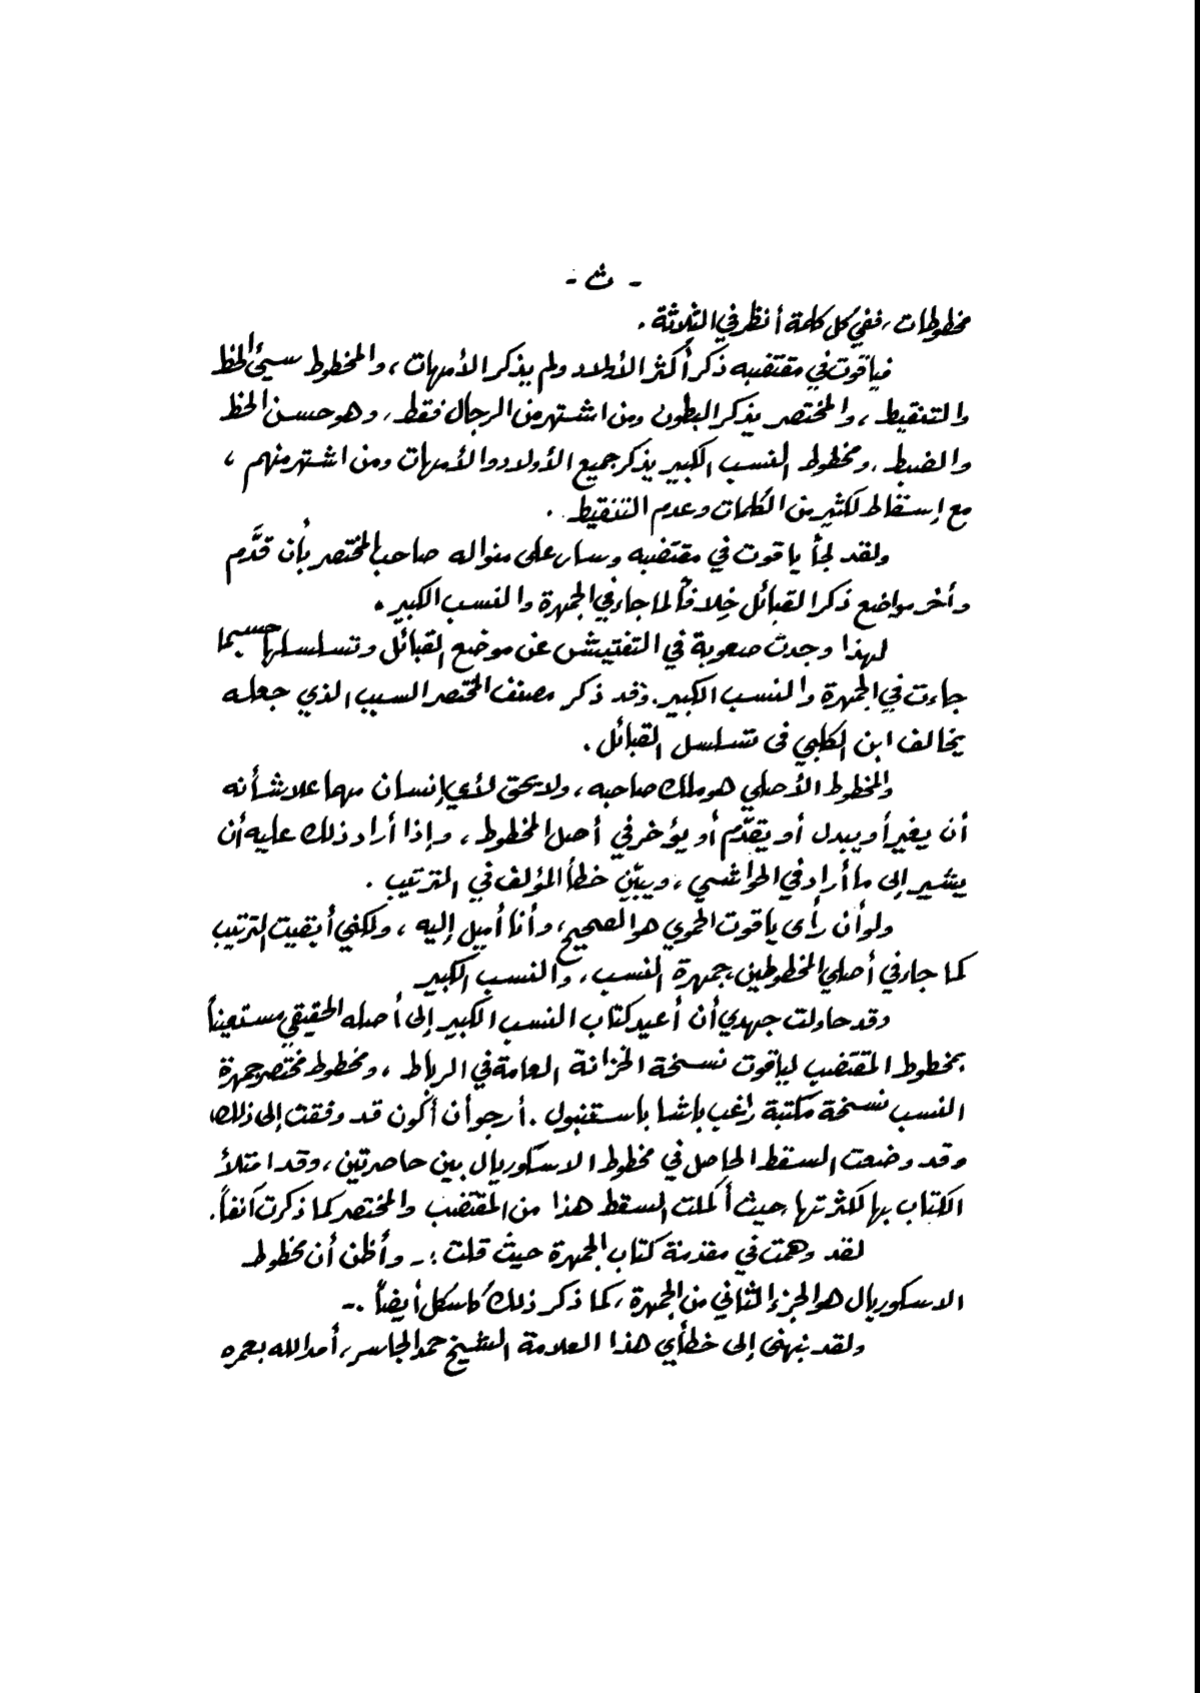 - ث -
مخطوطات، ففي كل كلمة أنظر في الثلاثة .
فياقوت في مقتضبه ذكر أكثر الأولاد ولم يذكر الأمهات، والمخطوط سيئ الخط
والتنقيط، والمختصر يذكر البطون ومن اشتهر من الرجال فقط، وهو حسن الخط
والضبط، ومخطوط النسب الكبير يذكر جميع الأولاد والأمهات ومن اشتهر منهم ،
مع إسقاط لكثير من الكلمات وعدم التنقيط .
ولقد لجأ ياقوت في مقتضبه وسار على منواله صاحب المختصر بأن قدَّم
وأخر مواضع ذكر القبائل خِلافاً لما جاء في الجمهرة والنسب الكبير .
لهذا وجدت صعوبة في التفتيش عن موضع القبائل وتسلسلها حسبما
جاءت في الجمهرة والنسب الكبير. وقد ذكر مصنف المختصر السبب الذي جعله
يخالف ابن الكلبي في تسلسل القبائل .
والمخطوط الأصلي هو ملك صاحبه ، ولا يحق لأي إنسان مهما علا شأنه
أن يغير أو يبدل أو يقدّم أو يؤخر في أصل المخطوط ، وإذا أراد ذلك عليه أن
يشير إلى ما أراد في الحواشي ، ويبيّن خطأ المؤلف في الترتيب .
ولو أن رأى ياقوت الحموي هو الصحيح، وأنا أميل إليه ، ولكني أبقيت الترتيب
كما جاء في أصلي المخطوطين، جمهرة النسب، والنسب الكبير
وقد حاولت جهدي أن أعيد كتاب النسب الكبير إلى أصله الحقيقي مستعيناً
بمخطوط المقتضب لياقوت نسخة الخزانة العامة في الرباط ، ومخطوط مختصر جمهرة
النسب نسخة مكتبة راغب باشا باستنبول . أرجو أن أكون قد وفقت إلى ذلك،
وقد وضعت السقط الحاصل في مخطوط الاسكوريال بين حاصرتين ، وقد امتلأ
الكتاب بها لكثرتها حيث أكملت السقط هذا من المقتضب والمختصر كما ذكرت آنفاً .
لقد وهمت في مقدمة كتاب الجمهرة حيث قلت :- وأظن أن مخطوط
الاسكوريال هو الجزء الثاني من الجمهرة ، كما ذكر ذلك كاسكل أيضاً .-
ولقد نبهني إلى خطأي هذا العلامة الشيخ حمد الجاسر، أمد الله بعمره